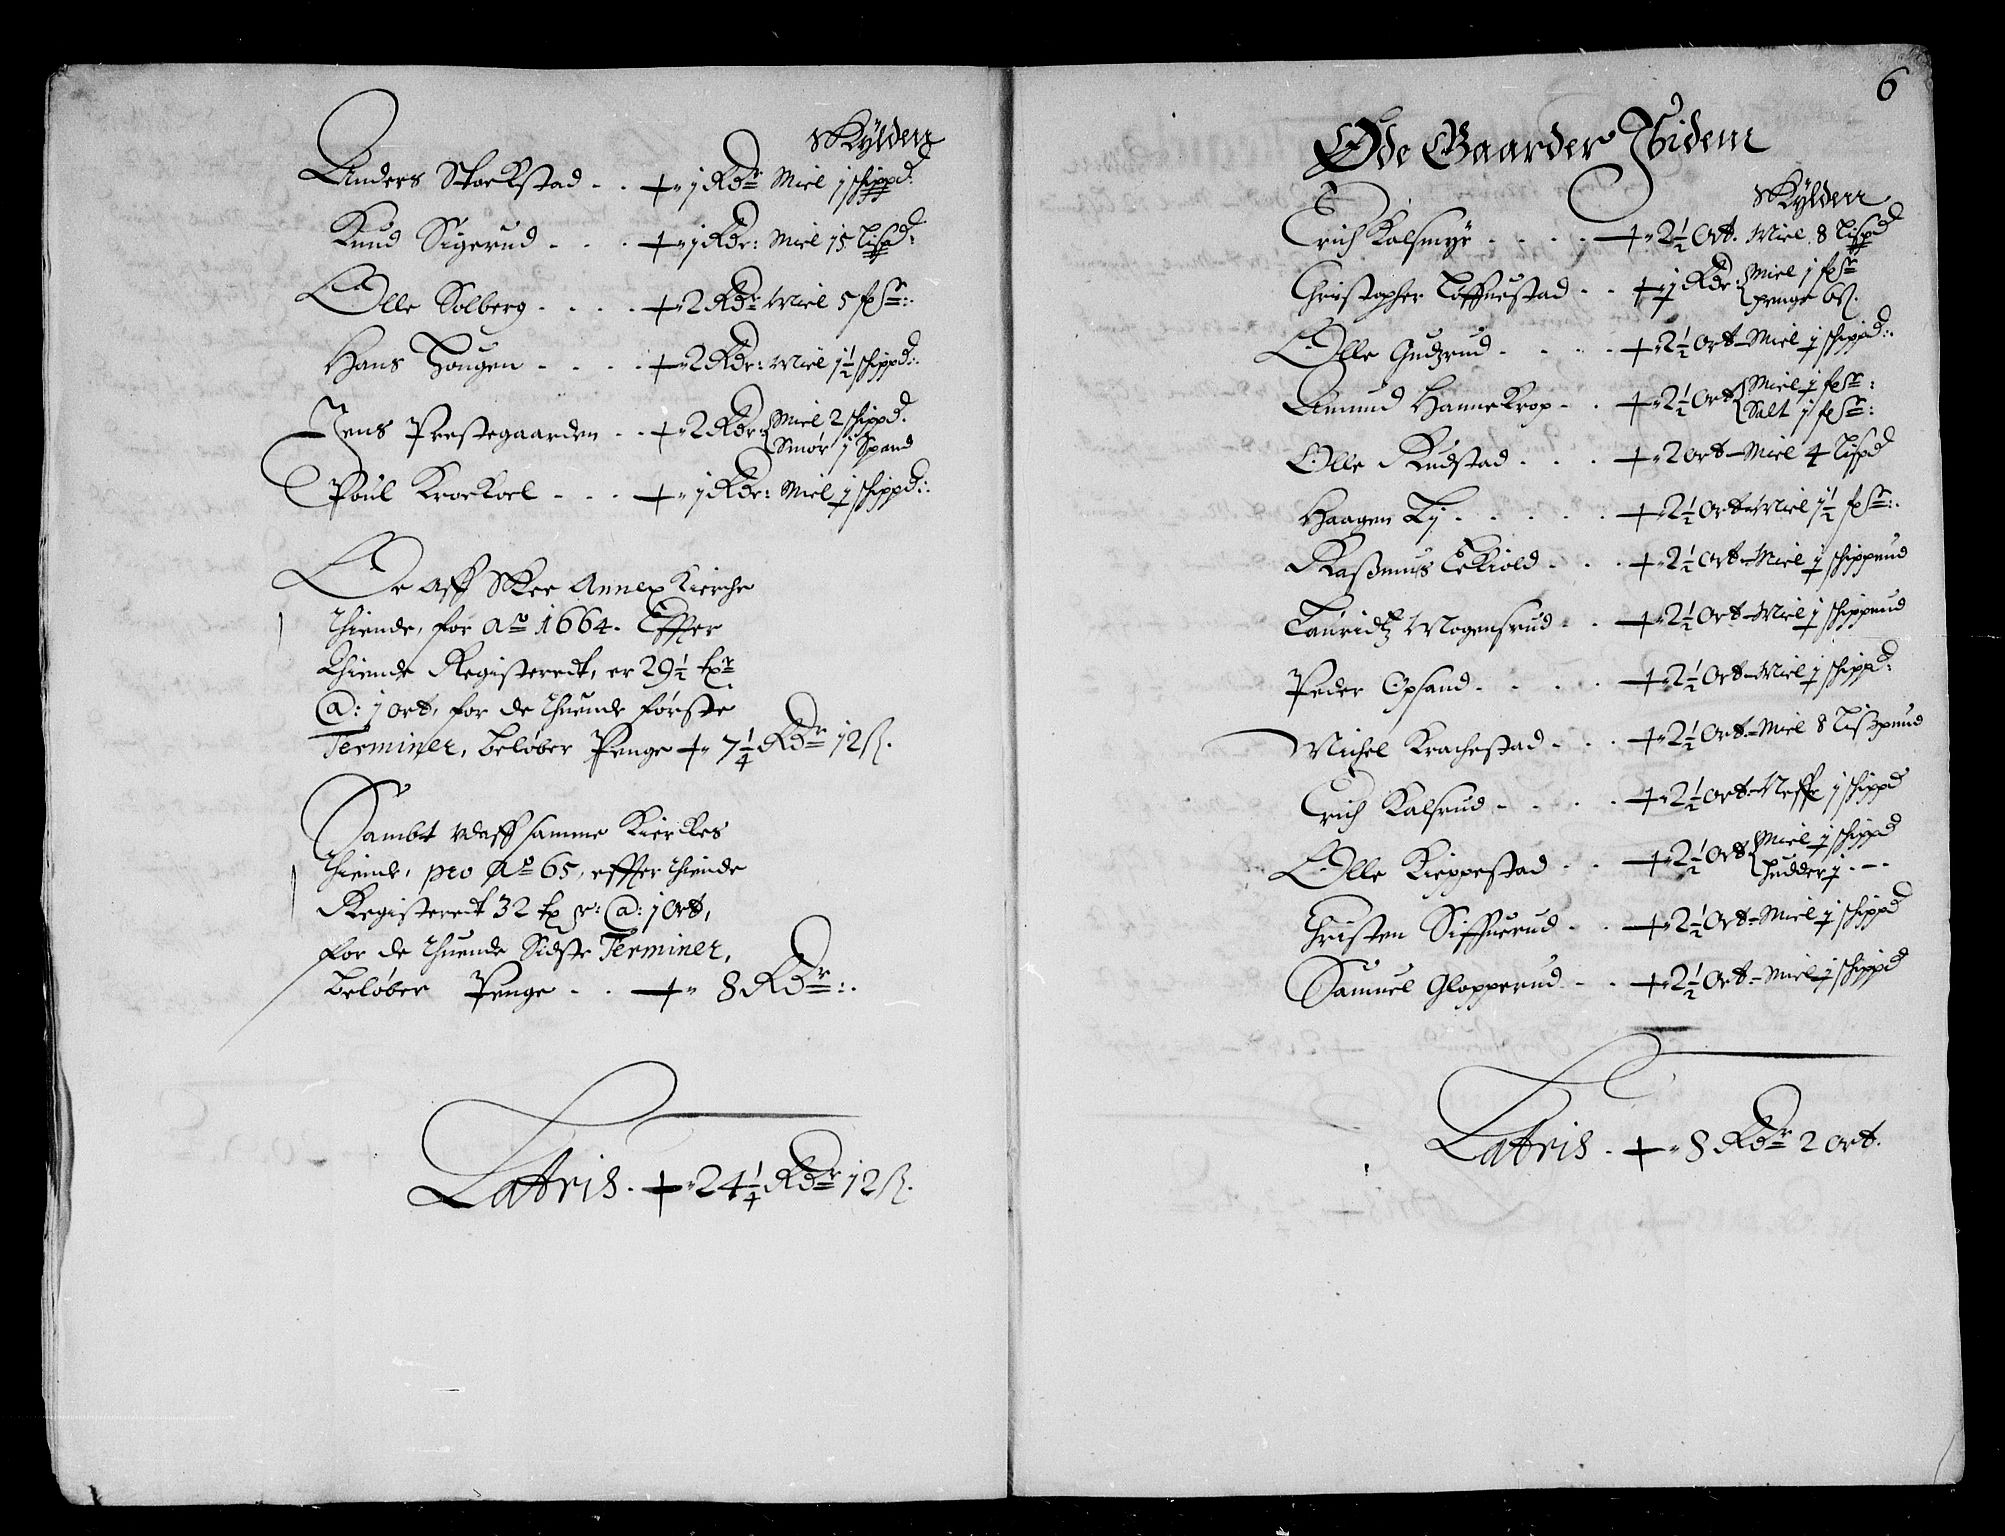 Skylden
Anders Stockstad - - + 1 Rdr Miel 1 schippd:
Knud Sigerud - - - + 1 Rdr: Miel 15 Lispd:
Olle Solberg - - - + 2 Rdr Miel 5 fr:
Hans Hougen - - - + 2 Rdr: Miel 1½ schippd:
Jens Prestegaarden - - + 2 Rdr: Miel 2 schippd.
Smør 1 Spand
Poul Krockoel - - - + 1 Rdr: Miel 1 schippd:
Er aff Skee Annex Kierche
thiende, for Ao 1664. Effter
thiende Registeredt, er 29½ tr
@: 1 ort, for de thuende første
Terminer, beløber Penge + 7¼ Rdr 12 ß.
Sambt udaff samme Kierckes
thiende, pro Ao 65, effter thiende
Registeredt 32 tr: @: 1 Ort,
for de thuende Sidste Terminer,
beløber Penge - - + 8 Rdr:
Latris - + 24¼ Rdr 12 ß.
6
Øde Gaarder Ibidem
Skylden
Erich Kalsmyr - - - - + 2½ Ort. Miel 8 Lispd
Christopher Toffuestad - - + 1 Rdr: Miel 1 fr
penge 6 ß.
Olle Gudzrud - - - - + 2½ Ort Miel 1 schippd:
Amund Hannekrop - - + 2½ Ort Miel 1 fr:
Salt 1 fr:
Olle Rudstad - - - + 2 Ort Miel 4 Lispd
Haagen Lj - - - - - + 2½ Ort Miel 1½ fr:
Rasmus Eckiold - - - + 2½ Ort Miel 1 schippund
Lauridtz Mogensrud - - + 2½ Ort Miel 1 schippund
Peder Opsand - - - - + 2½ Ort Miel 1 schippd:
Michel Krachestad - - - + 2½ Ort Miel 8 Lispund
Erich Kalsrud - - - - + 2½ Ort Neffr 1 schippd
Olle Kieppestad - - + 2½ Ort Miel 1 schippd
hudder 1 - -
Christen Siffuerud - - + 2½ Ort Miel 1 schippd
Samuel Glopperud - - + 2½ Ort Miel 1 schippd
Latris - + 8 Rdr 2 ort.